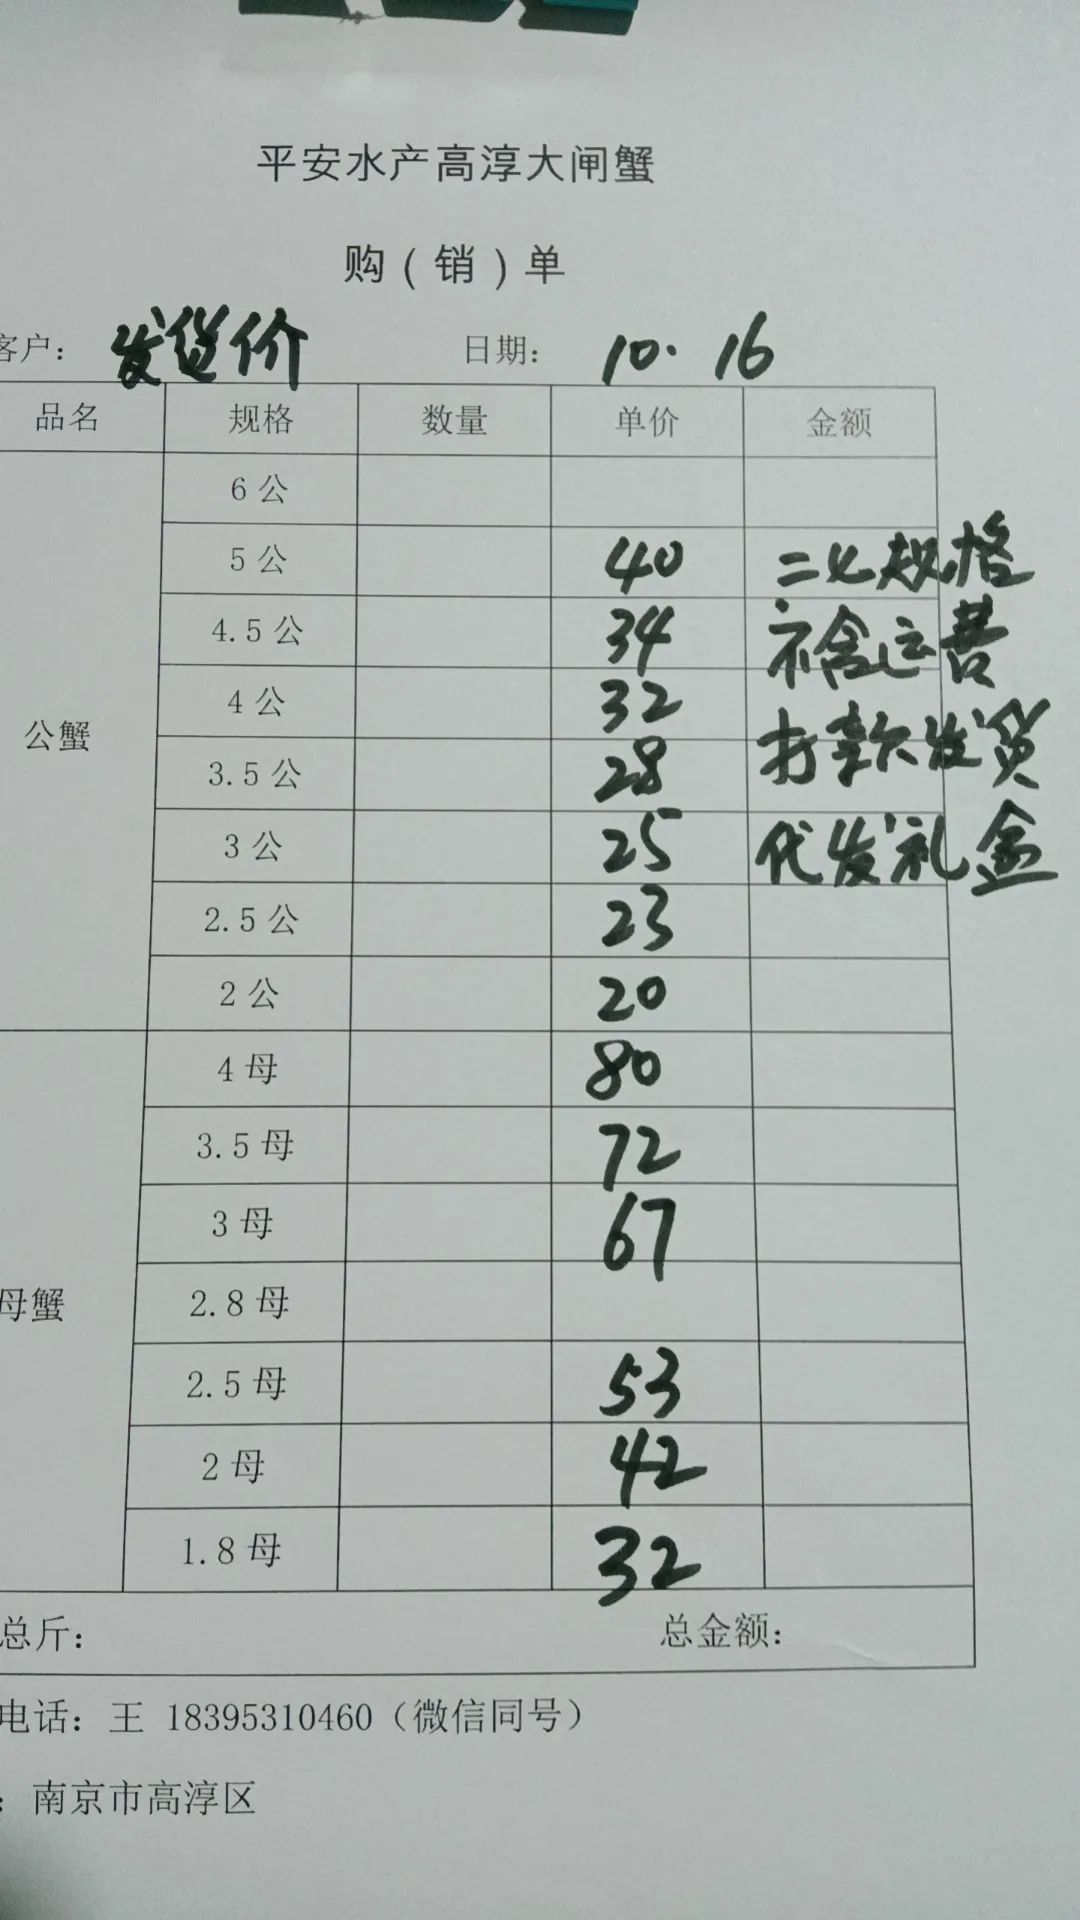 平安水产高淳大闸蟹
购（销）单
客户： 发货价 日期： 10.16
品名 规格 数量 单价 金额
公蟹
6公
5公 40 二七规格
4.5公 34 不含运费
4公 32
3.5公 28 打款发货
3公 25 代发礼盒
2.5公 23
2公 20
母蟹
4母 80
3.5母 72
3母 67
2.8母
2.5母 53
2母 42
1.8母 32
总斤： 总金额：
电话：王 18395310460（微信同号）
：南京市高淳区